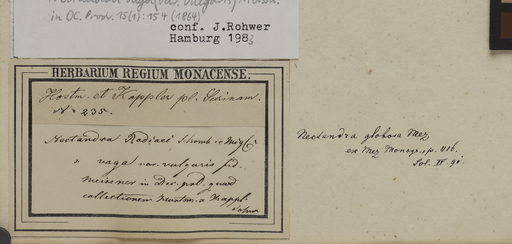 in DC. Prodr. 15(1): 154 (1864)
conf. J.Rohwer
Hamburg 198
HERBARIUM REGIUM MONACENSE.
Hostm. et Kappler pl. Surinam.
N. 235.
Nectandra Rodiaei Schomb.
" vaga var. vulgaris fid.
meissner in Dec. prd. quoad
collectionem Hostm. & Kappl.
Nectandra globosa Mez
ex Mez Monogr. p. 416.
Sol. IV 90